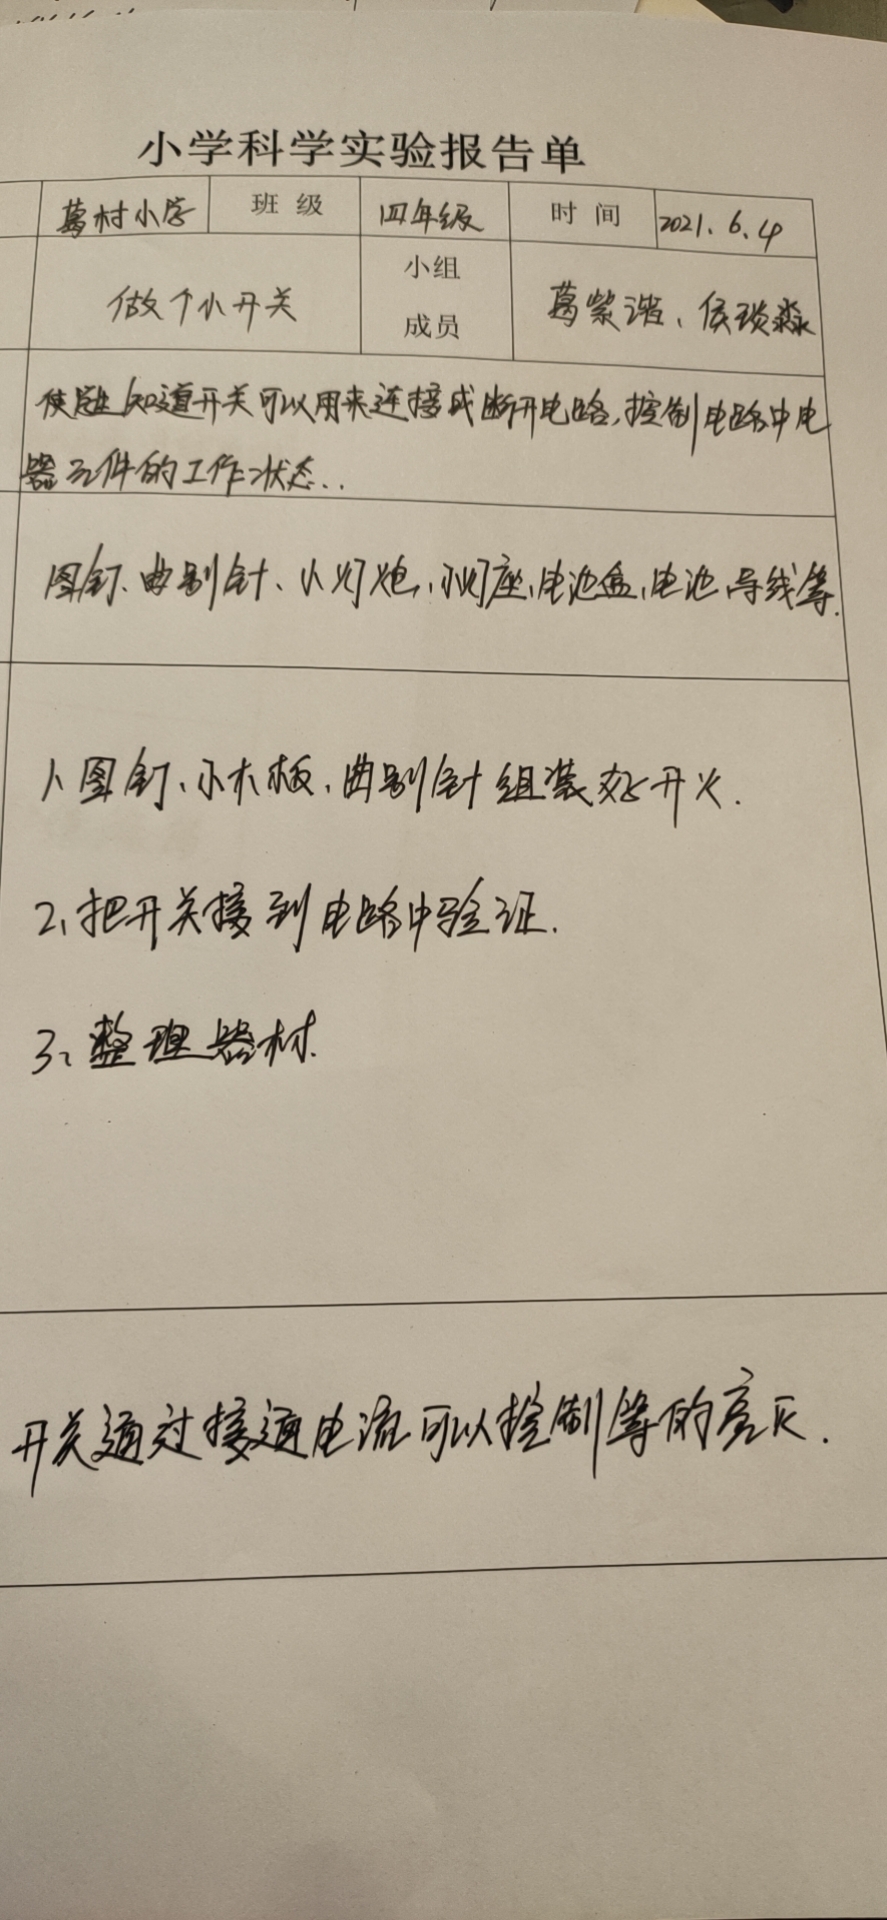 小学科学实验报告单
葛村小学 班级 四年级 时间 2021.6.4
做个小开关 小组成员 葛紫谐、侯琰淼
使学生知道开关可以用来连接或断开电路,控制电路中电
器元件的工作状态..
图钉、曲别针、小灯炮、小灯座、电池盒、电池、导线等.
1、图钉、小木板、曲别针组装好开关.
2、把开关接到电路中验证.
3、整理器材.
开关通过接通电流可以控制等的亮灭.